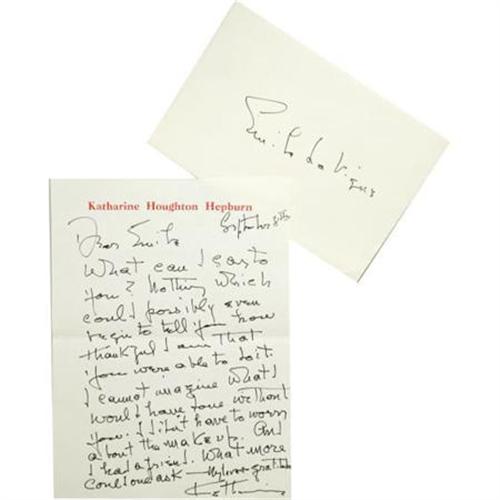 Emilo La Vigne
Katharine Houghton Hepburn
Dear Emilo
What can I say to
You? Nothing which
could possibly even
begin to tell you how
thankful I am that
You were able to do it.
I cannot imagine what I
would have done without
You. I didn't have to worry
about the makeup. And
I had a friend. What more
could one ask — My love & gratitude